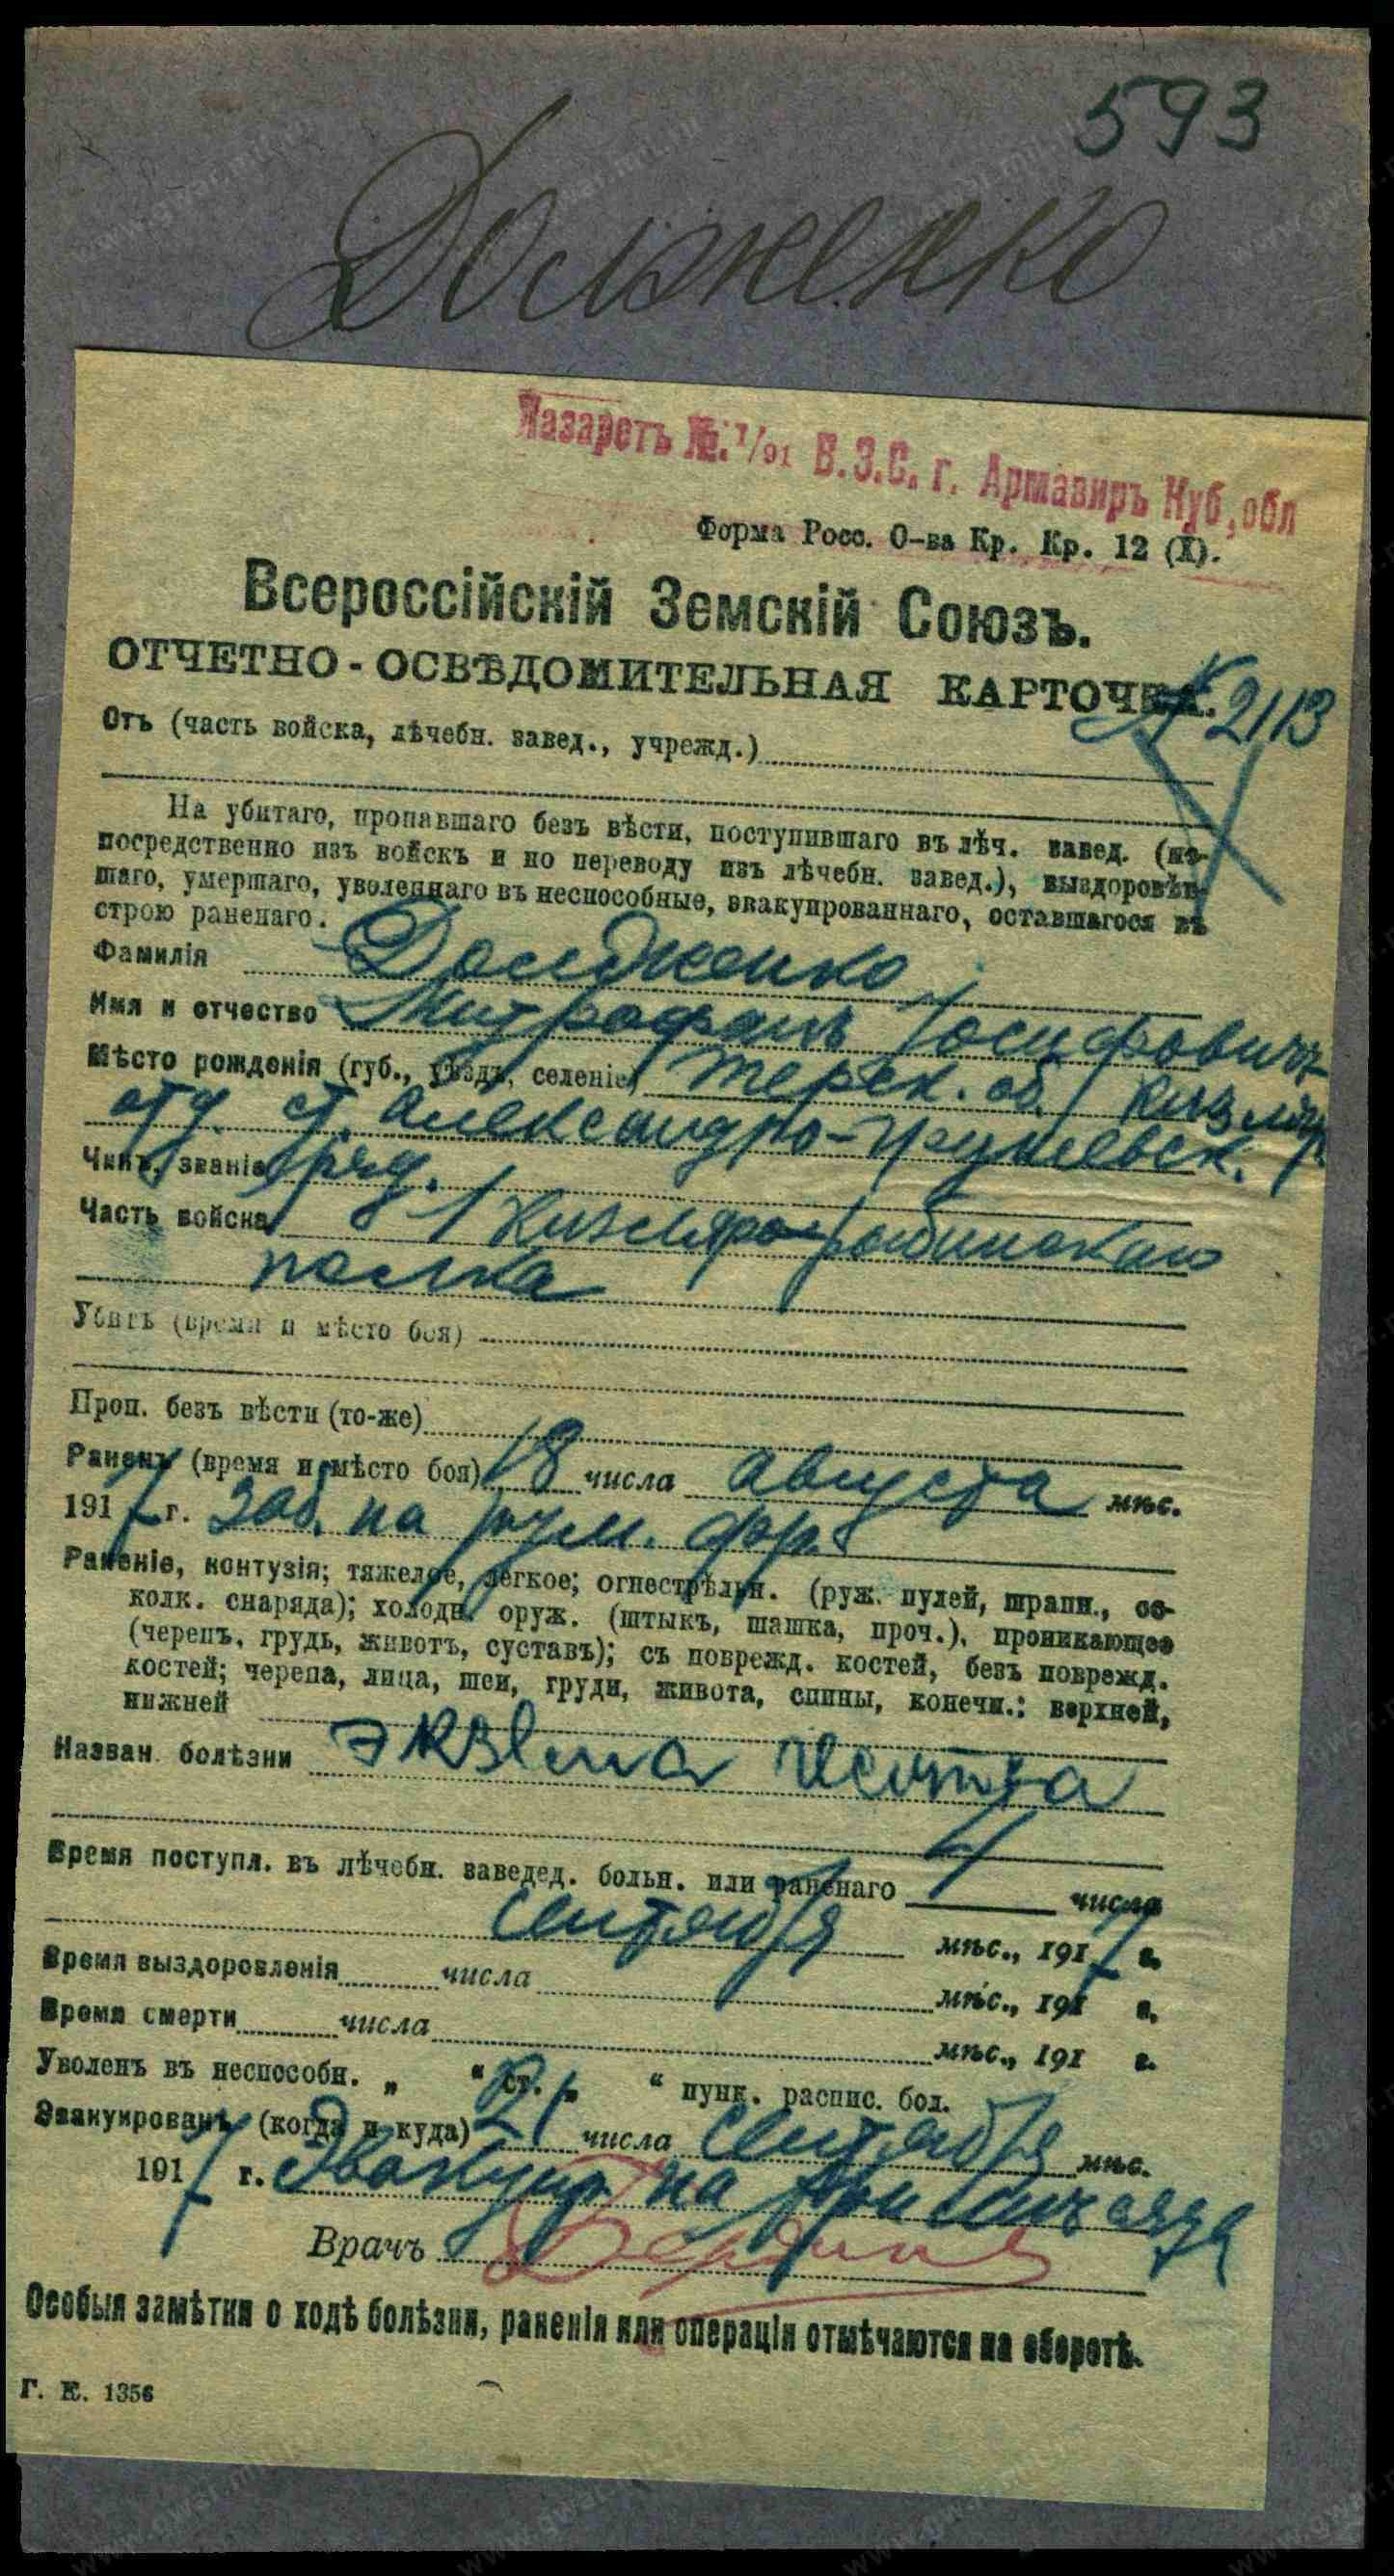 593
Долженко
Лазаретъ №. 7/91 В.З.С. г. Армавиръ Куб, обл
Форма Росс. О-ва Кр. Кр. 12 (I).
Всероссійскій Земскій Союзъ.
ОТЧЕТНО-ОСВѢДОМИТЕЛЬНАЯ КАРТОЧКА.
2113
Отъ (часть войска, лѣчебн. завед., учрежд.)
На убитаго, пропавшаго безъ вѣсти, поступившаго въ лѣч. завед. (не-
посредственно изъ войскъ и по переводу изъ лѣчебн. завед.), выздоровѣв-
шаго, умершаго, уволеннаго въ неспособные, эвакуированнаго, оставшагося въ
строю раненаго.
Фамилія Долдженко
Имя и отчество Митрофанъ Іосифовичъ
Мѣсто рожденія (губ., уѣздъ, селеніе) Терск. об. Кизляр.
отд. ст. Александро-
Чинъ, званіе ряд.
Часть войска 1 Кизляро-Гребинскаго
полка
Убитъ (время и мѣсто боя)
Проп. безъ вѣсти (то-же)
Раненъ (время и мѣсто боя) 18 числа августа мѣс.
1917 г. Заб. на рум. фр.
Раненіе, контузія; тяжелое, легкое; огнестрѣльн. (руж. пулей, шрапн., ос-
колк. снаряда); холодн. оруж. (штыкъ, шашка, проч.), проникающее
(черепъ, грудь, животъ, суставъ); съ поврежд. костей, безъ поврежд.
костей; черепа, лица, шеи, груди, живота, спины, конечн.: верхней,
нижней
Назван. болѣзни экзема
Время поступл. въ лѣчебн. заведед. больн. или раненаго 4 числа
сентября мѣс., 1917 г.
Время выздоровленія числа мѣс., 191 г.
Время смерти числа мѣс., 191 г.
Уволенъ въ неспособн. „ “ ст. „ “ пунк. распис. бол.
Эвакуированъ (когда и куда) 21 числа сентября мѣс.
1917 г. Эвакуир. на
Врачъ
Особыя замѣтки о ходѣ болѣзни, раненія или операціи отмѣчаются на оборотѣ.
Г. К. 1356